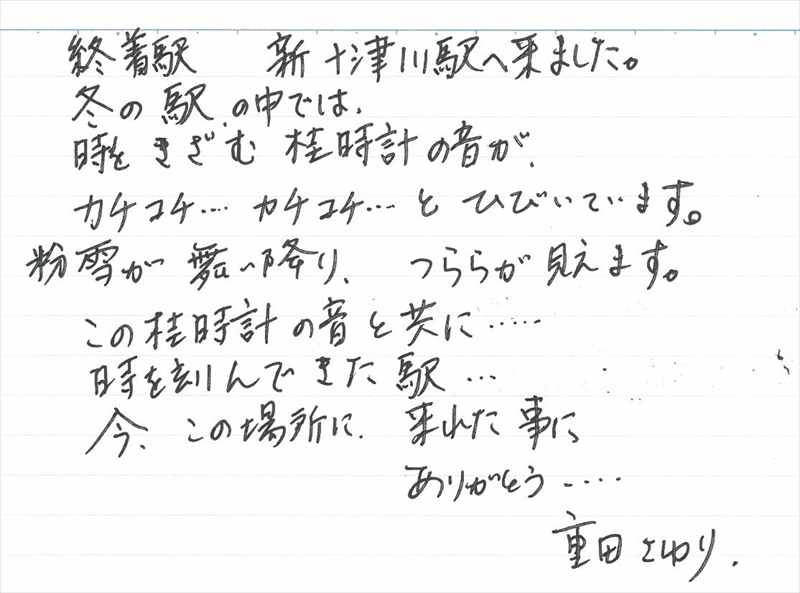 終着駅 新十津川駅へ来ました。
冬の駅の中では、
時をきざむ 桂時計の音が、
カチコチ…. カチコチ….と ひびいています。
粉雪が 舞い降り、 つららが 見えます。
この桂時計の音と共に‥‥‥
時を刻んできた 駅…
今、この場所に、 来れた 事に、
ありがとう‥‥
重田 さゆり.